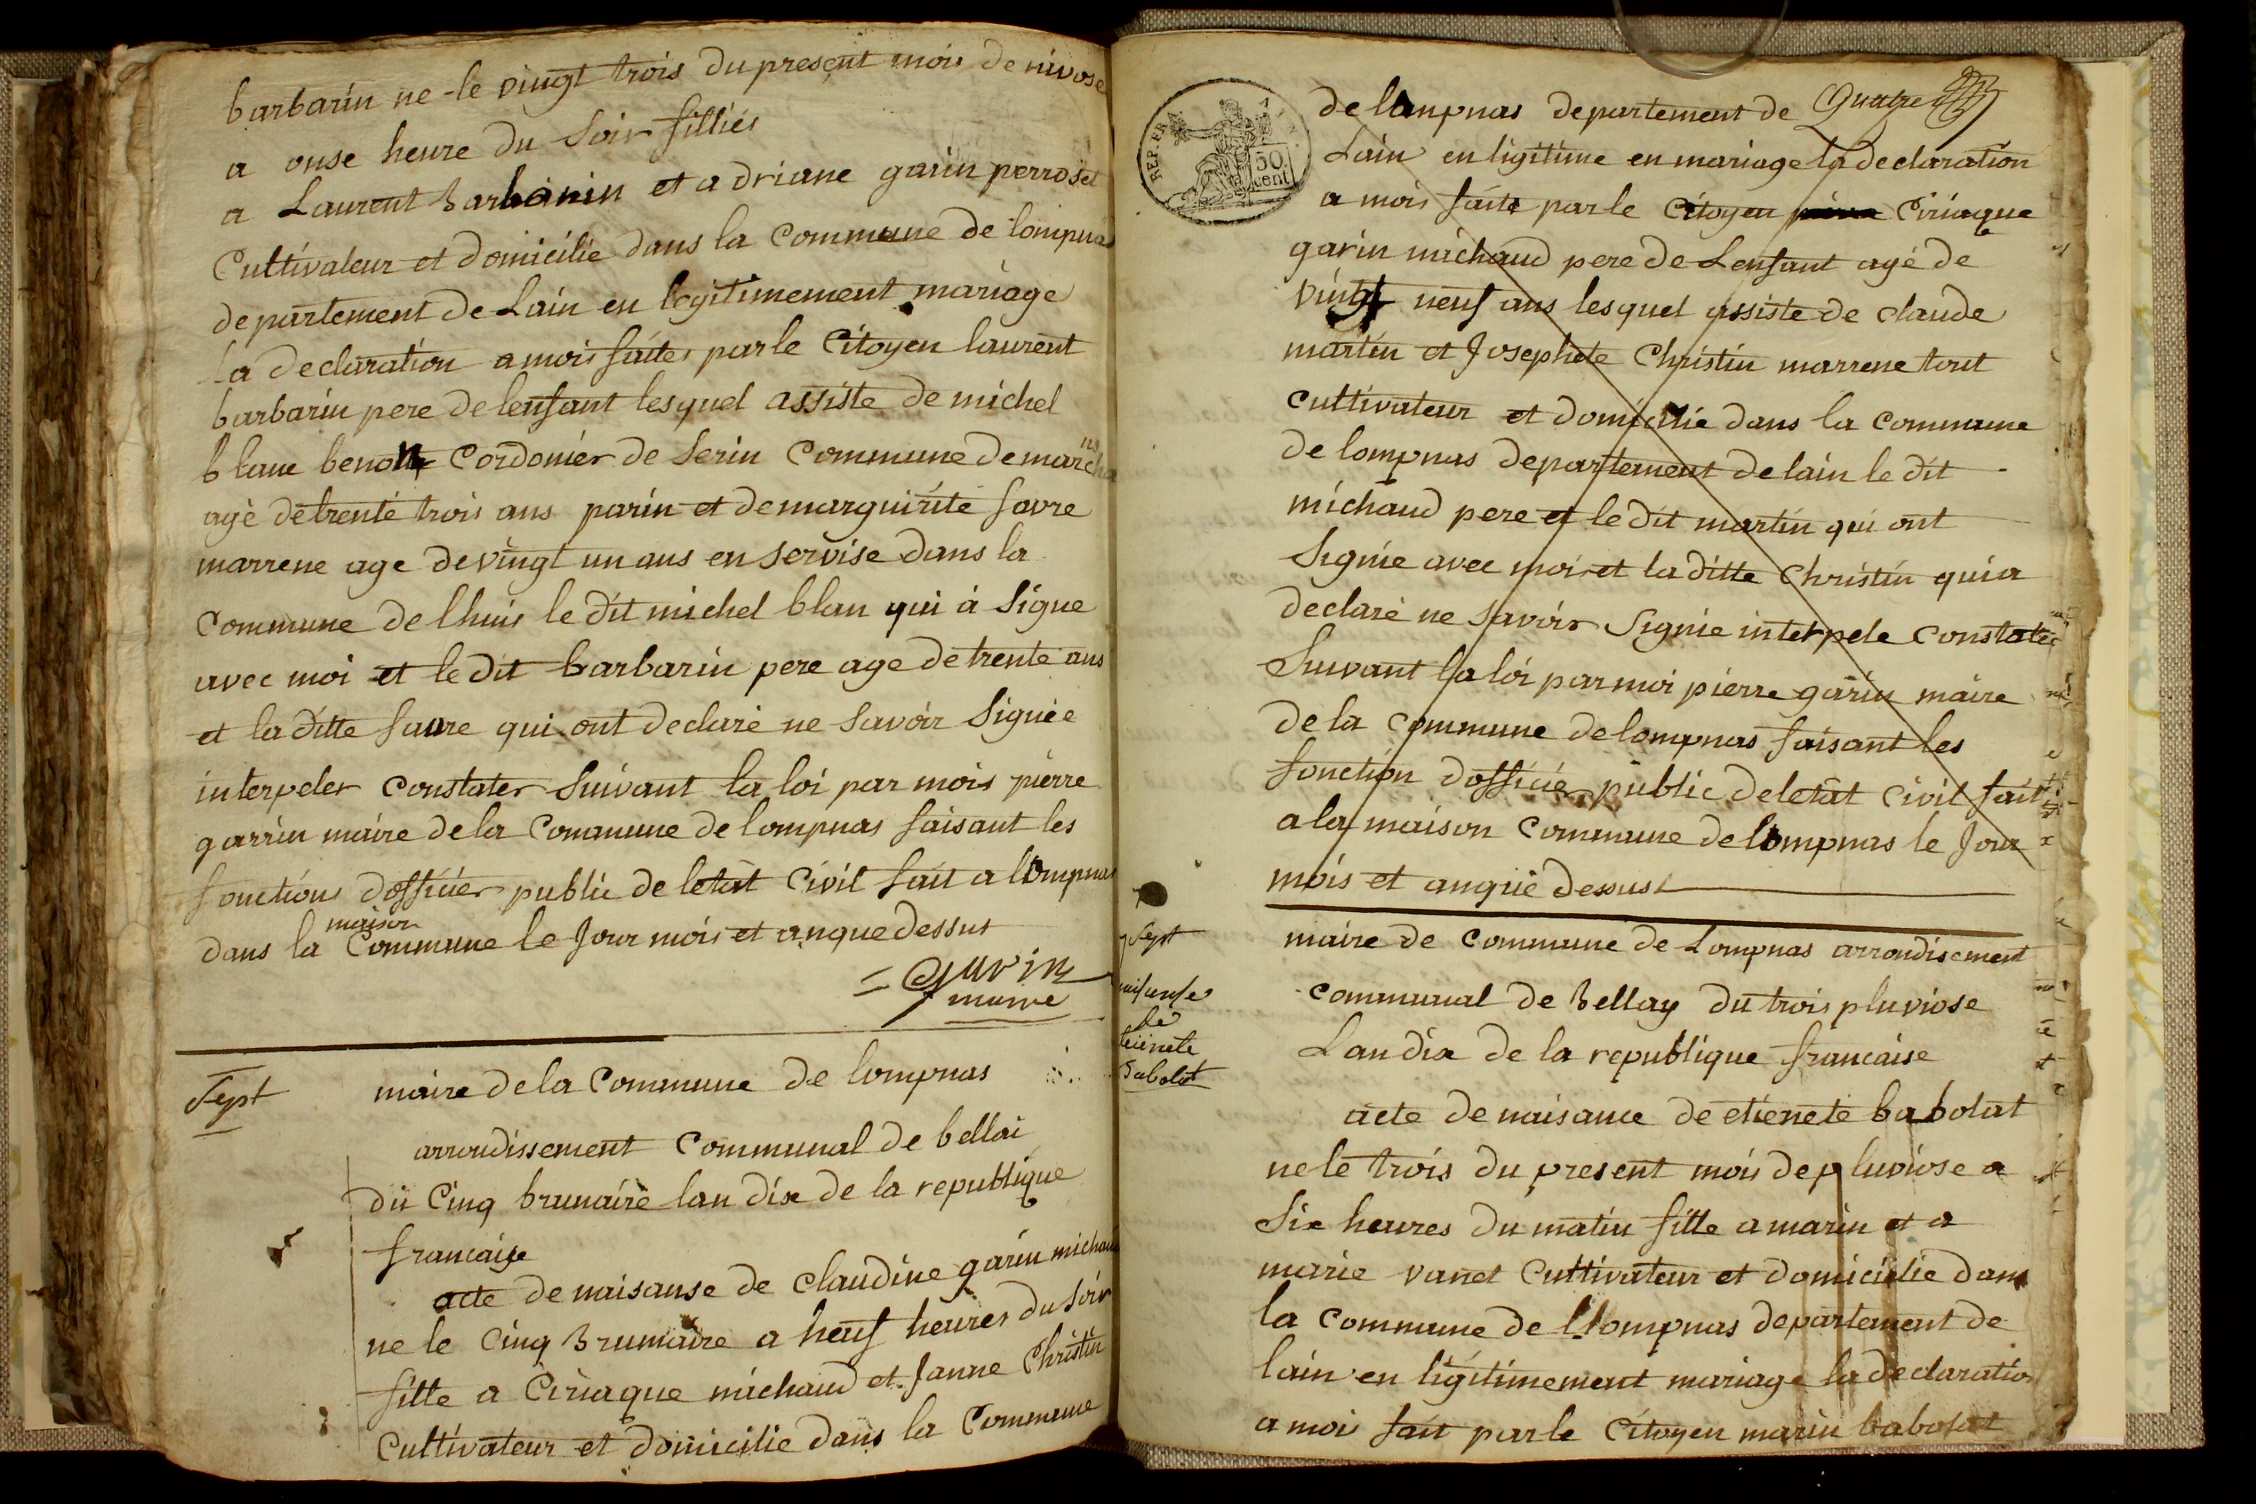 barbarin ne le vingt trois du present mois de nivose
a onse heure du soir filliés
a Laurent Barbarin et a driane garin perroset
Cultivateur et domicilié dans la Commune de lompnas
departement de Lain en legitimement mariage
la declaration a mois faites par le Citoyen laurent
barbarin pere de lenfant lesquel assiste de michel
blanc benoit Cordonier de Serin Commune de marcha
agè de trente trois ans parin et de marguirite favre
marrene age de vingt un ans en servise dans la
Commune de lhuis le dit michel blan qui à signe
avec moi et le dit barbarin pere age de trente ans
et la ditte faure qui ont declarè ne savoir signée
interpeler Constater Suivant la loi par mois pierre
garrin maire de la Commune de lompnas faisant les
fonctions dofficier public de letat Civil fait a lompnas
dans la maison Commune le Jour mois et anque dessus
= Garin
maire
Sept
maire de la Commune de lompnas
arrondissement Communal de bellai
du Cinq brumaire lan dix de la republique
francaise
acte de naisanse de claudine garin michaud
ne le Cinq Brumaire a neuf heures du soir
fille a Ciriaque michaud et Janne Christin
Cultivateur et domicilie dans la Commune
Quatre
REP. FRA
50
cent
de lompnas departement de
Lain en ligitime en mariage la declaration
a mois faite par le Citoyen Ciriaque
garin michaud pere de Lenfant agé de
vingt neuf ans lesquel assiste de claude
martin et Josephete Christin marrene tout
cultivateur et domicilie dans la commune
de lompnas departement de lain le dit
michaud pere et le dit martin qui ont
Signie avec mois et la ditte Christin qui a
declarè ne savoir Signie interpele Constater
Suivant la loi par moi pierre garin maire
de la Commune de lompnas faisant les
fonction dofficier public de letat Civil fait
a la maison Commune de lompnas le Jour
mois et anque dessus
7 Sept
naisanse
de
teienete
Babolat
maire de Commune de Lompnas arrondisement
communal de Bellay du trois pluviose
Lan dix de la republique francaise
acte de naisance de etienete babolat
ne le trois du present mois de pluviose a
Six heures du matin fille a marin et a
marie vanet Cultivateur et domicielie dans
la Commune de Llompnas departement de
lain en ligitimement mariage la declaration
a moi fait par le Citoyen marin babolat